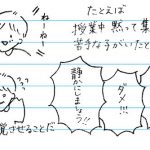 たとえば
授業中 黙って集
苦手な子がいたと
ねーねー
ダメ!!!
静かにしましょう!!
覚させることだ